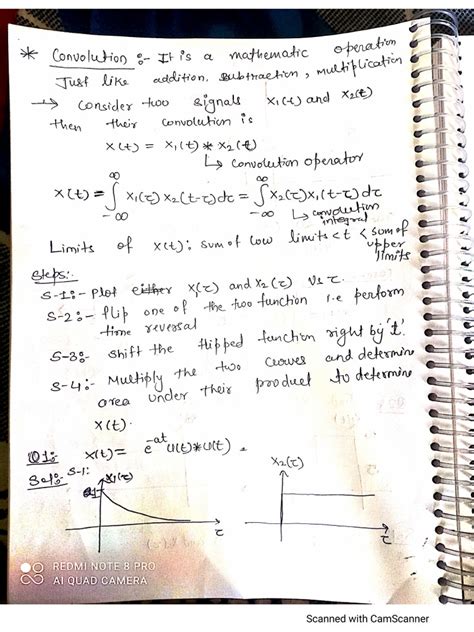 * Convolution :- It is a mathematic operation
Just like addition, subtraction, multiplication
→ consider two signals x₁(t) and x₂(t)
then their convolution is
x(t) = x₁(t) * x₂(t)
↳ convolution operator
x(t) = ∫_{-∞}^{∞} x₁(τ) x₂(t-τ) dτ = ∫_{-∞}^{∞} x₂(τ) x₁(t-τ) dτ
↳ convolution integral
Limits of x(t): sum of low limits < t < sum of upper limits
Steps:-
S-1:- Plot either x₁(τ) and x₂(τ) Vs τ.
S-2:- flip one of the two function i.e perform
time reversal
S-3:- Shift the flipped function right by 't'.
S-4:- Multiply the two curves and determine
area under their product to determine
x(t).
Q1:- x(t) = e^{-at} u(t) * u(t).
Sol:- S-1:
x₁(τ)
x₂(τ)
1
τ
τ
REDMI NOTE 8 PRO
AI QUAD CAMERA
Scanned with CamScanner